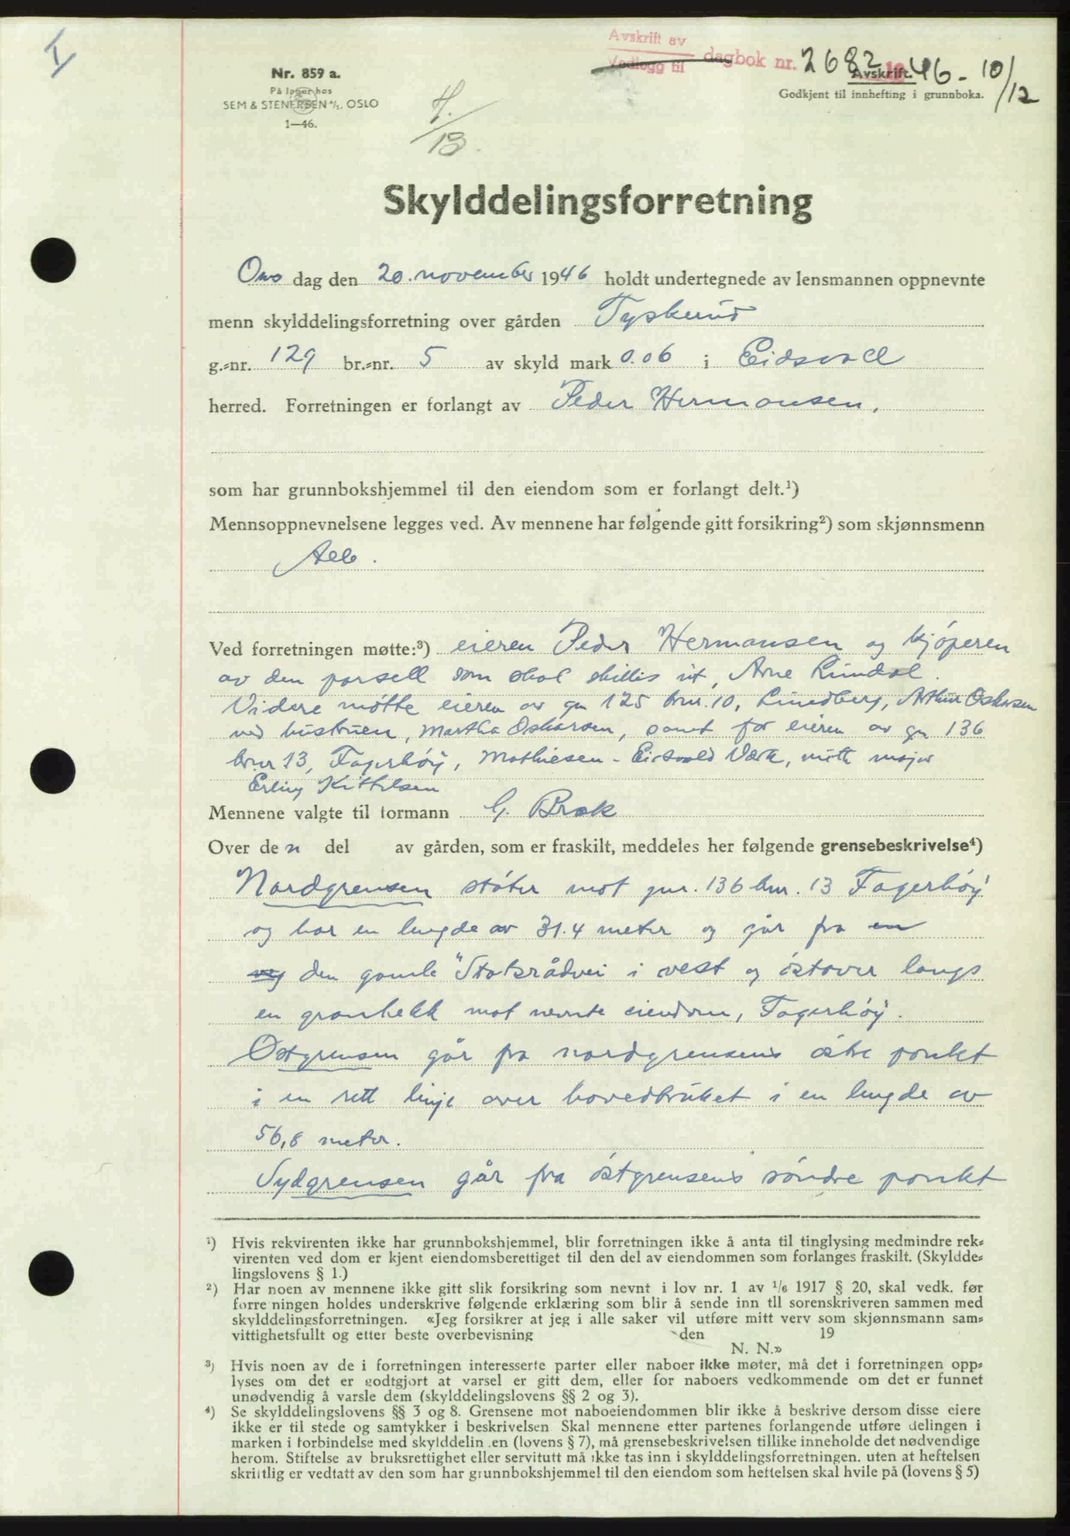 I
Nr. 859 a.
På lager hos
SEM & STENERSEN A/S. OSLO
1—46.
Avskrift av
Vedlegg til dagbok nr. 2682 1946 - 10/12
Avskrift.
Godkjent til innhefting i grunnboka.
Skylddelingsforretning
Ons dag den 20. november 1946 holdt undertegnede av lensmannen oppnevnte
menn skylddelingsforretning over gården Tyskerud
g.-nr. 129 br.-nr. 5 av skyld mark 0.06 i Eidsvoll
herred. Forretningen er forlangt av Peder Hermansen,
som har grunnbokshjemmel til den eiendom som er forlangt delt.¹)
Mennsoppnevnelsene legges ved. Av mennene har følgende gitt forsikring²) som skjønnsmenn
Alle.
Ved forretningen møtte:³) eieren Peder Hermansen og kjöperen
av den parsell som skal skilles ut, Arne Lundal.
Videre møtte eieren av gn 125 bnr. 10, Lundberg, Arthur Oskarsen
ved hustruen, Martha Oskarsen, samt for eieren av gn 136
bnr 13, Fagerhöy, Mathiesen - Eidsvold Værk, møtte major
Erling Kittilsen
Mennene valgte til formann G. Brak
Over den del av gården, som er fraskilt, meddeles her følgende grensebeskrivelse⁴)
Nordgrensen stöter mot gnr. 136 bnr. 13 Fagerhöy
og har en lengde av 31.4 meter og går fra en
veg den gamle "Statsrådvei i vest og östover langs
en granhekk mot nevnte eiendom, Fagerhöy.
Østgrensen går fra nordgrensens östre ponkt
i en rett linje over hovedbruket i en lengde av
56,8 meter.
Sydgrensen går fra östgrensens söndre ponkt
¹) Hvis rekvirenten ikke har grunnbokshjemmel, blir forretningen ikke å anta til tinglysing medmindre rek-
virenten ved dom er kjent eiendomsberettiget til den del av eiendommen som forlanges fraskilt. (Skyldde-
lingslovens § 1.)
²) Har noen av mennene ikke gitt slik forsikring som nevnt i lov nr. 1 av 1/6 1917 § 20, skal vedk. før
forretningen holdes underskrive følgende erklæring som blir å sende inn til sorenskriveren sammen med
skylddelingsforretningen. «Jeg forsikrer at jeg i alle saker vil utføre mitt verv som skjønnsmann sam-
vittighetsfullt og etter beste overbevisning den 19
N. N.»
³) Hvis noen av de i forretningen interesserte parter eller naboer ikke møter, må det i forretningen opp-
lyses om det er godtgjort at varsel er gitt dem, eller for naboers vedkommende om det er funnet
unødvendig å varsle dem (skylddelingslovens §§ 2 og 3).
⁴) Se skylddelingslovens §§ 3 og 8. Grensene mot naboeiendommen blir ikke å beskrive dersom disse eiere
ikke er til stede og samtykker i beskrivelsen Skal mennene etter partenes forlangende utføre delingen i
marken i forbindelse med skylddelingen (lovens § 7), må grensebeskrivelsen tillike inneholde det nødvendige
herom. Stiftelse av bruksrettighet eller servitutt må ikke tas inn i skylddelingsforretningen. uten at heftelsen
skriftlig er vedtatt av den som har grunnbokshjemmel til den eiendom som heftelsen skal hvile på (lovens § 5)